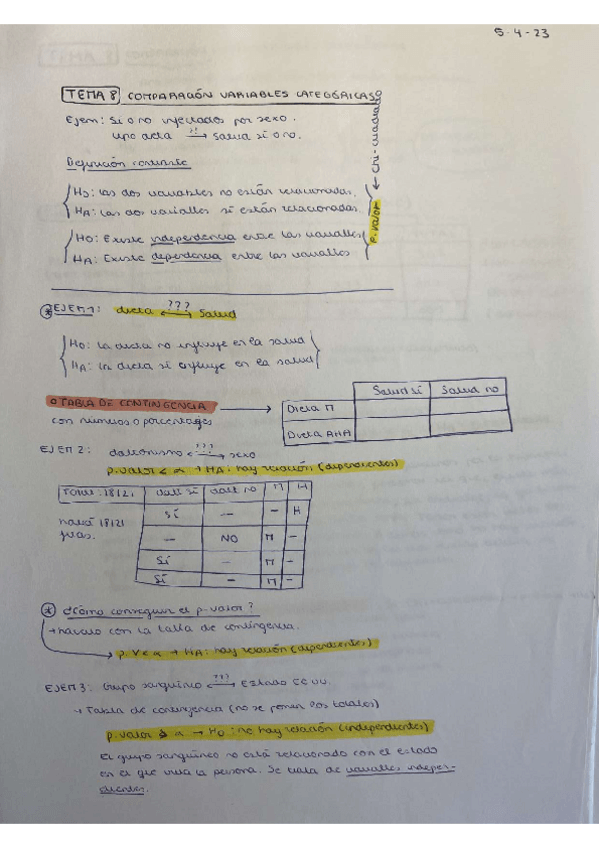 5-4-23
TEMA 8 COMPARACIÓN VARIABLES CATEGÓRICAS
chi-cuadrado
p-valor
Ejem: Sí o no infectados por sexo.
tipo dieta ⟶ salud sí o no.
Definición contraste
H0: las dos variables no están relacionadas.
HA: las dos variables sí están relacionadas
H0: Existe independencia entre las variables
HA: Existe dependencia entre las variables
* EJEM 1: dieta ??? Salud
H0: la dieta no influye en la salud
HA: la dieta sí influye en la salud
TABLA DE CONTINGENCIA →
con números o porcentajes
Salud sí Salud no
Dieta M
Dieta AHA
EJEM 2: daltonismo ??? sexo
p-valor < α → HA: hay relación (dependientes)
Total: 18121 dalt sí dalt no M H
Sí -- - H
-- NO M -
Sí - M -
Sí - M -
habrá 18121
filas.
* ¿Cómo conseguir el p-valor?
→ hacerlo con la tabla de contingencia.
p.v < α → HA: hay relación (dependientes)
EJEM 3: Grupo sanguíneo ??? Estado EEUU.
→ Tabla de contingencia (no se ponen los totales)
p-valor > α → H0: no hay relación (independientes)
El grupo sanguíneo no está relacionado con el estado
en el que viva la persona. Se trata de variables indepen-
dientes.